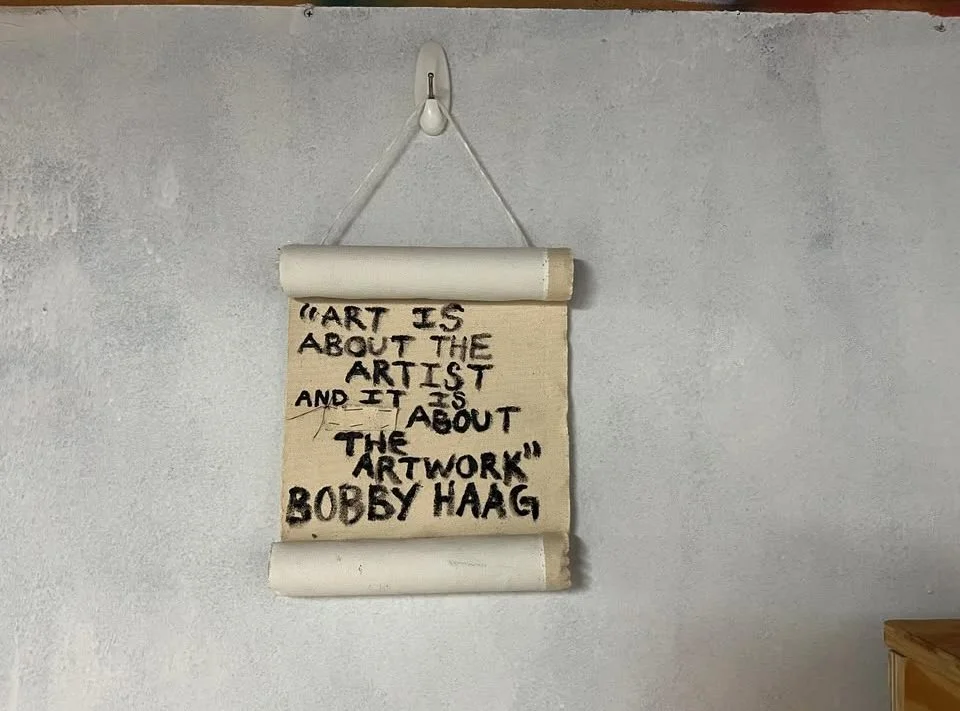 “ART IS
ABOUT THE
ARTIST
AND IT IS
ABOUT
THE
ARTWORK”
BOBBY HAAG